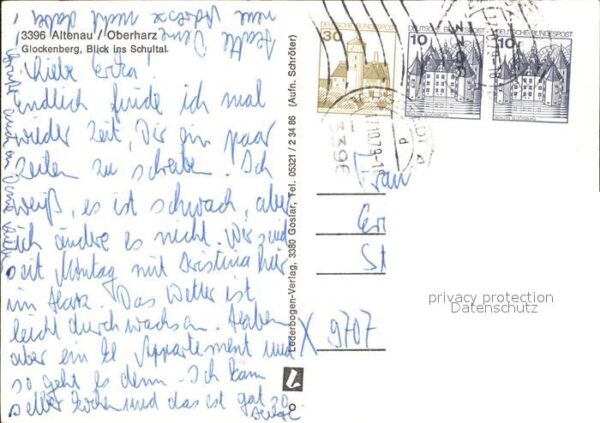 3396 Altenau / Oberharz
Glockenberg, Blick ins Schultal
Liebe Erika!
Endlich finde ich mal
wieder Zeit, Dir ein paar
Zeilen zu schreiben. Ich
weiß, es ist schwach, aber
ich ändre es nicht. Wir sind
seit Montag mit Kristina hier
im Harz. Das Wetter ist
leicht durchwachsen. Haben
aber ein Appartement und
so geht es denn. Ich kann
selber kochen und das ist gut so
Lederbogen-Verlag, 3380 Goslar, Tel. 05321 / 2 34 86 (Aufn. Schröter)
DEUTSCHE BUNDESPOST
30
DEUTSCHE BUNDESPOST
10
DEUTSCHE BUNDESPOST
10
3396
10.79
Frau
Er
St
X 9707
privacy protection
Datenschutz